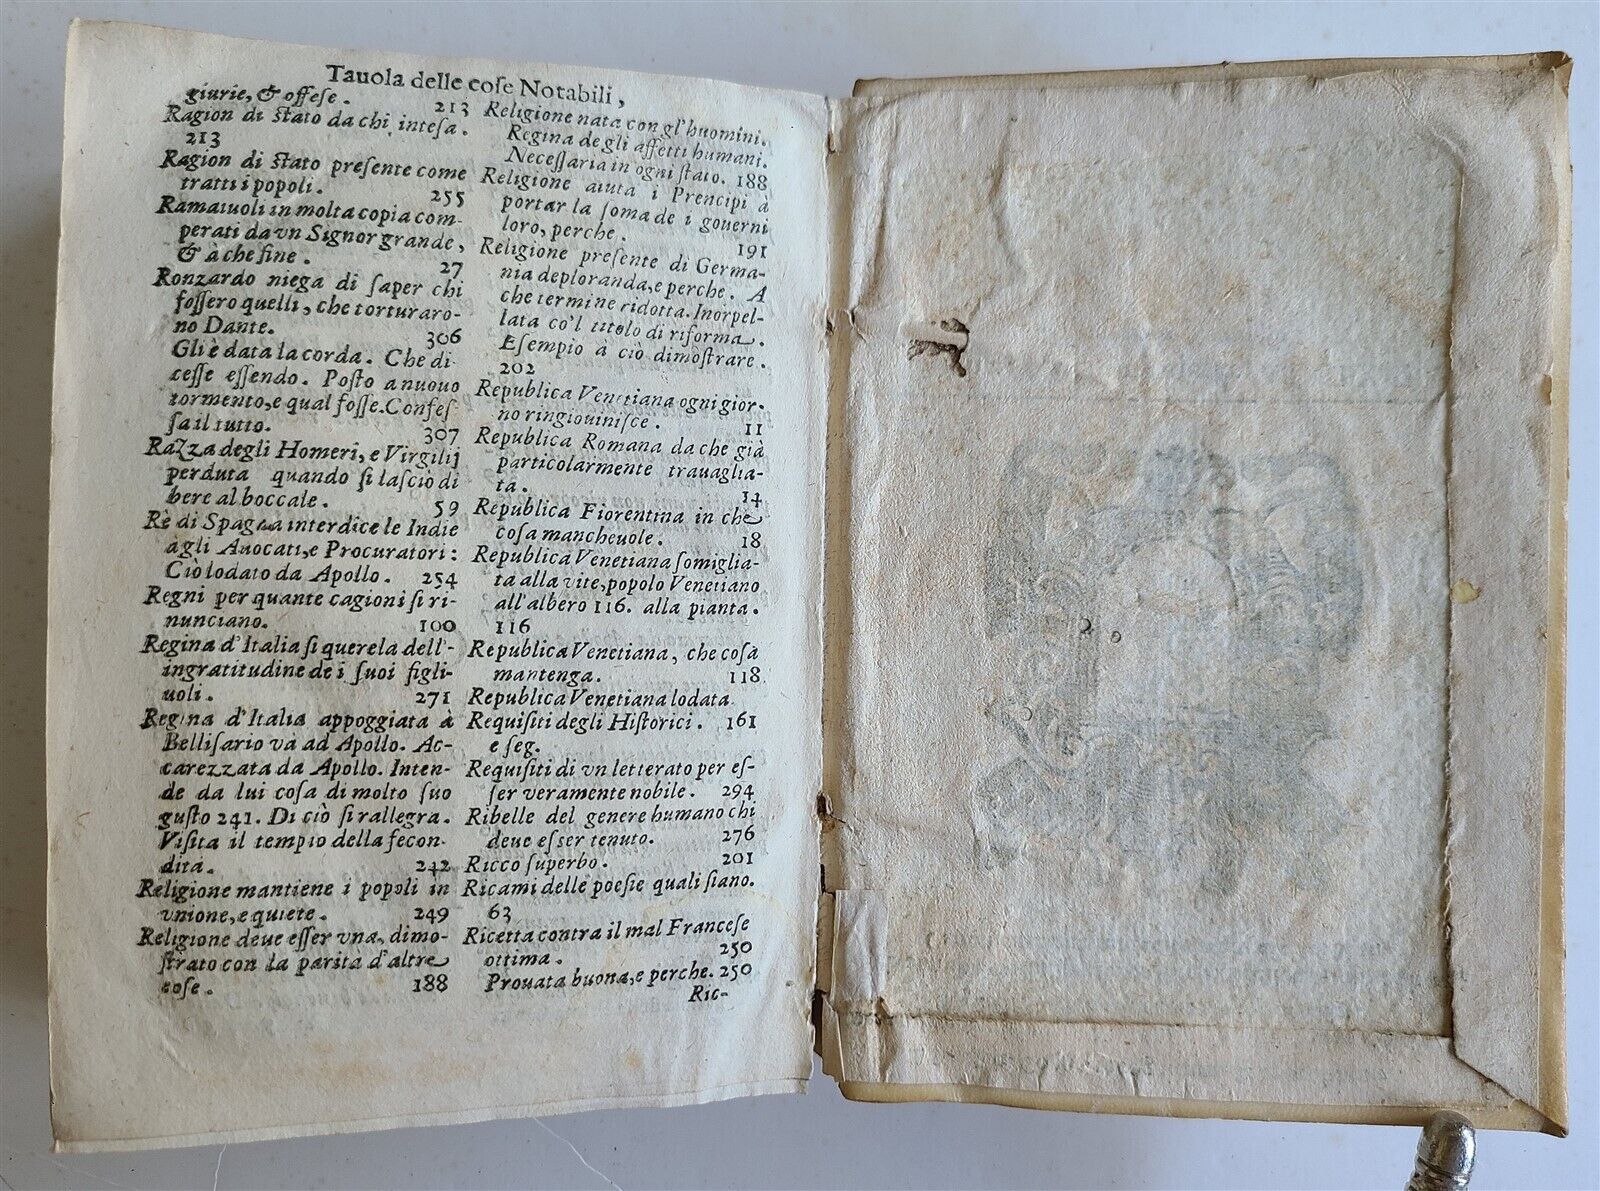 Tauola delle coſe Notabili,
giurie, & offeſe. 213
Ragion di ſtato da chi inteſa.
213
Ragion di ſtato preſente come
tratti i popoli. 255
Ramaiuoli in molta copia com-
perati da vn Signor grande,
& à che fine. 27
Ronzardo niega di ſaper chi
foſſero quelli, che torturaro-
no Dante. 306
Gli è data la corda. Che di-
ceſſe eſſendo. Poſto a nuouo
tormento, e qual foſſe. Confeſ-
ſa il tutto. 307
Razza degli Homeri, e Virgilij
perduta quando ſi laſciò di
bere al boccale. 59
Rè di Spagna interdice le Indie
agli Auocati, e Procuratori:
Ciò lodato da Apollo. 254
Regni per quante cagioni ſi ri-
nunciano. 100
Regina d'Italia ſi querela dell'-
ingratitudine de i ſuoi figli-
uoli. 271
Regina d'Italia appoggiata à
Belliſario và ad Apollo. Ac-
carezzata da Apollo. Inten-
de da lui coſa di molto ſuo
guſto 241. Di ciò ſi rallegra.
Viſita il tempio della fecon-
dità. 242
Religione mantiene i popoli in
vnione, e quiete. 249
Religione deue eſſer vna, dimo-
ſtrato con la parità d'altre
coſe. 188
Religione nata con gl'huomini.
Regina degli affetti humani.
Neceſſaria in ogni ſtato. 188
Religione aiuta i Prencipi à
portar la ſoma de i gouerni
loro, perche. 191
Religione preſente di Germa-
nia deploranda, e perche. A
che termine ridotta. Inorpel-
lata co'l titolo di riforma.
Eſempio à ciò dimoſtrare.
202
Republica Venetiana ogni gior-
no ringiouiniſce. 11
Republica Romana da che già
particolarmente trauaglia-
ta. 14
Republica Fiorentina in che
coſa mancheuole. 18
Republica Venetiana ſomiglia-
ta alla vite, popolo Venetiano
all'albero 116. alla pianta.
116
Republica Venetiana, che coſa
mantenga. 118
Republica Venetiana lodata
Requiſiti degli Hiſtorici. 161
e ſeg.
Requiſiti di vn letterato per eſ-
ſer veramente nobile. 294
Ribelle del genere humano chi
deue eſſer tenuto. 276
Ricco ſuperbo. 201
Ricami delle poeſie quali ſiano.
63
Ricetta contra il mal Franceſe
ottima. 250
Prouata buona, e perche. 250
Ric-